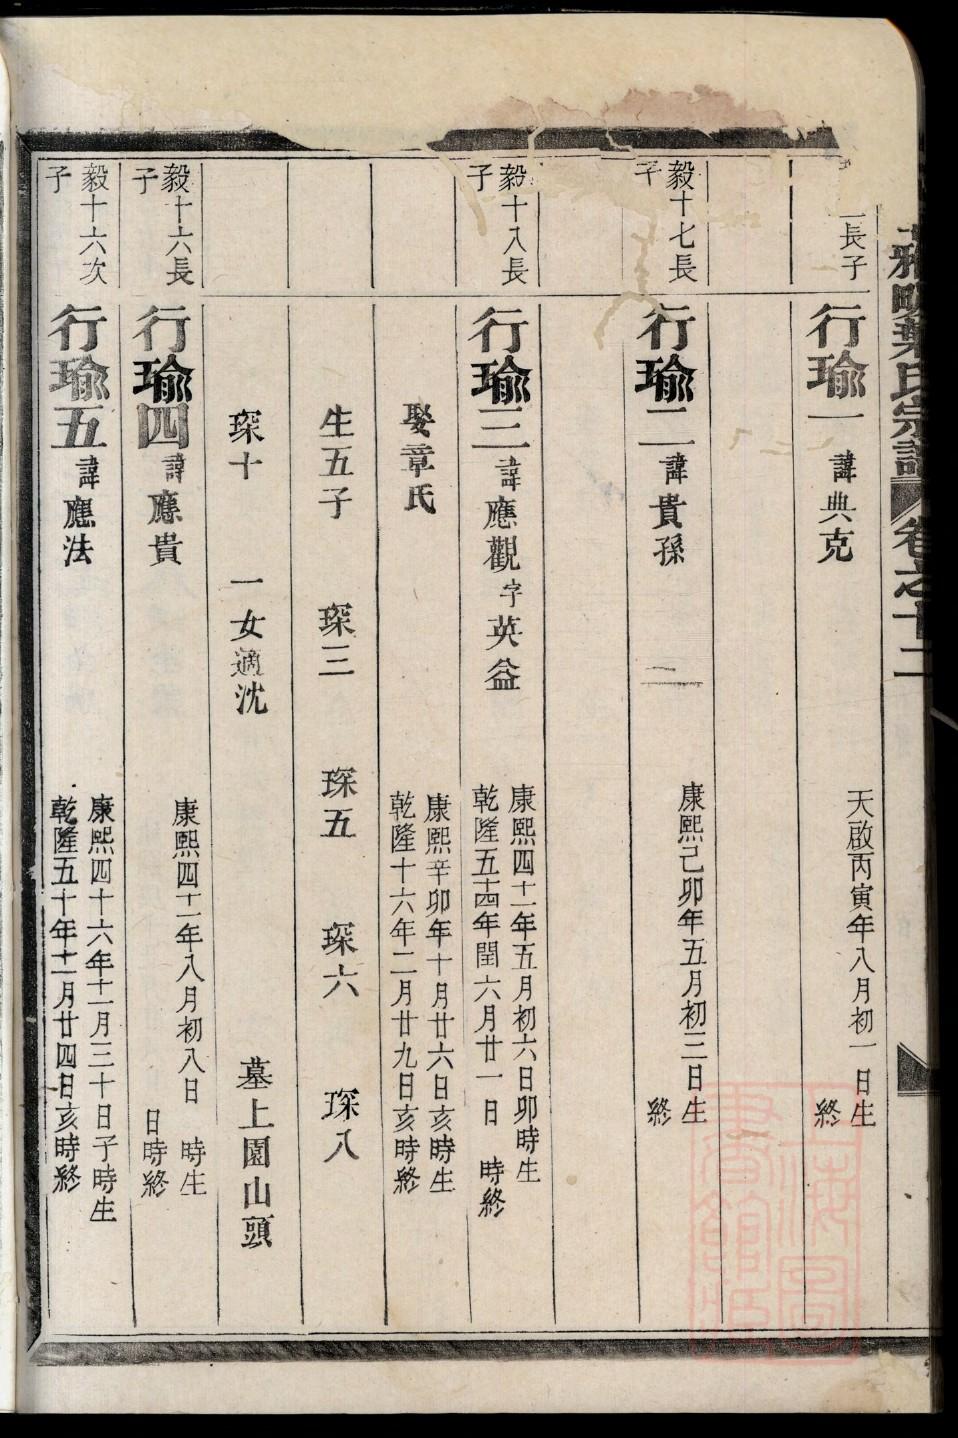 雅畈葉氏宗譜 卷之十二
一長子
行瑜一 諱典克 天啟丙寅年八月初一日生 終
毅十七長子
行瑜二 諱貴孫 康熙己卯年五月初三日生 終
毅十八長子
行瑜三 諱應觀字英益 康熙四十一年五月初六日卯時生 乾隆五十四年閏六月廿一日 時終
娶章氏 康熙辛卯年十月廿六日亥時生 乾隆十六年二月廿九日亥時終
生五子 琛三 琛五 琛六 琛八
琛十 一女適沈 墓上園山頭
毅十六長子
行瑜四 諱應貴 康熙四十一年八月初八日 時生 日時終
毅十六次子
行瑜五 諱應法 康熙四十六年十一月三十日子時生 乾隆五十年十二月廿四日亥時終